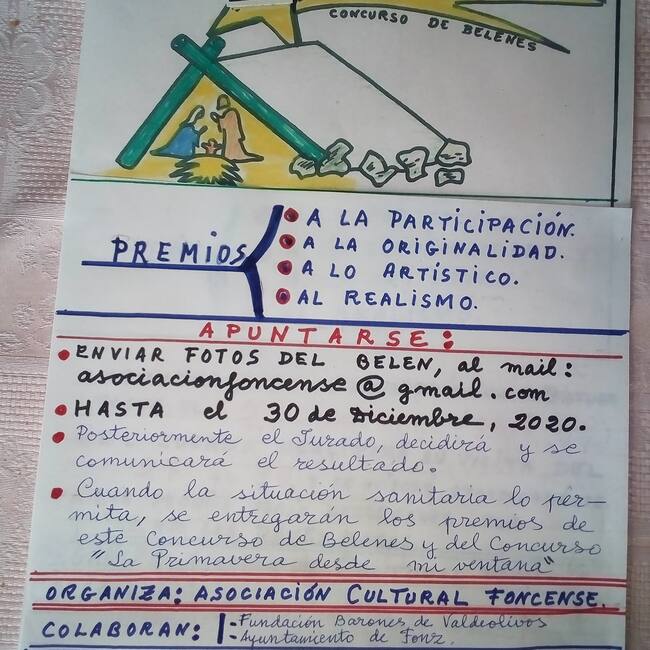 CONCURSO DE BELENES
PREMIOS
A LA PARTICIPACIÓN.
A LA ORIGINALIDAD.
A LO ARTÍSTICO.
AL REALISMO.
APUNTARSE:
ENVIAR FOTOS DEL BELEN, al mail:
asociacionfoncense@gmail.com
HASTA el 30 de Diciembre, 2020.
Posteriormente el Jurado, decidirá y se
comunicará el resultado.
Cuando la situación sanitaria lo per-
mita, se entregarán los premios de
este Concurso de Belenes y del Concurso
"La Primavera desde mi ventana"
ORGANIZA: ASOCIACIÓN CULTURAL FONCENSE.
COLABORAN: - Fundación Barones de Valdeolivos
- Ayuntamiento de Fonz.